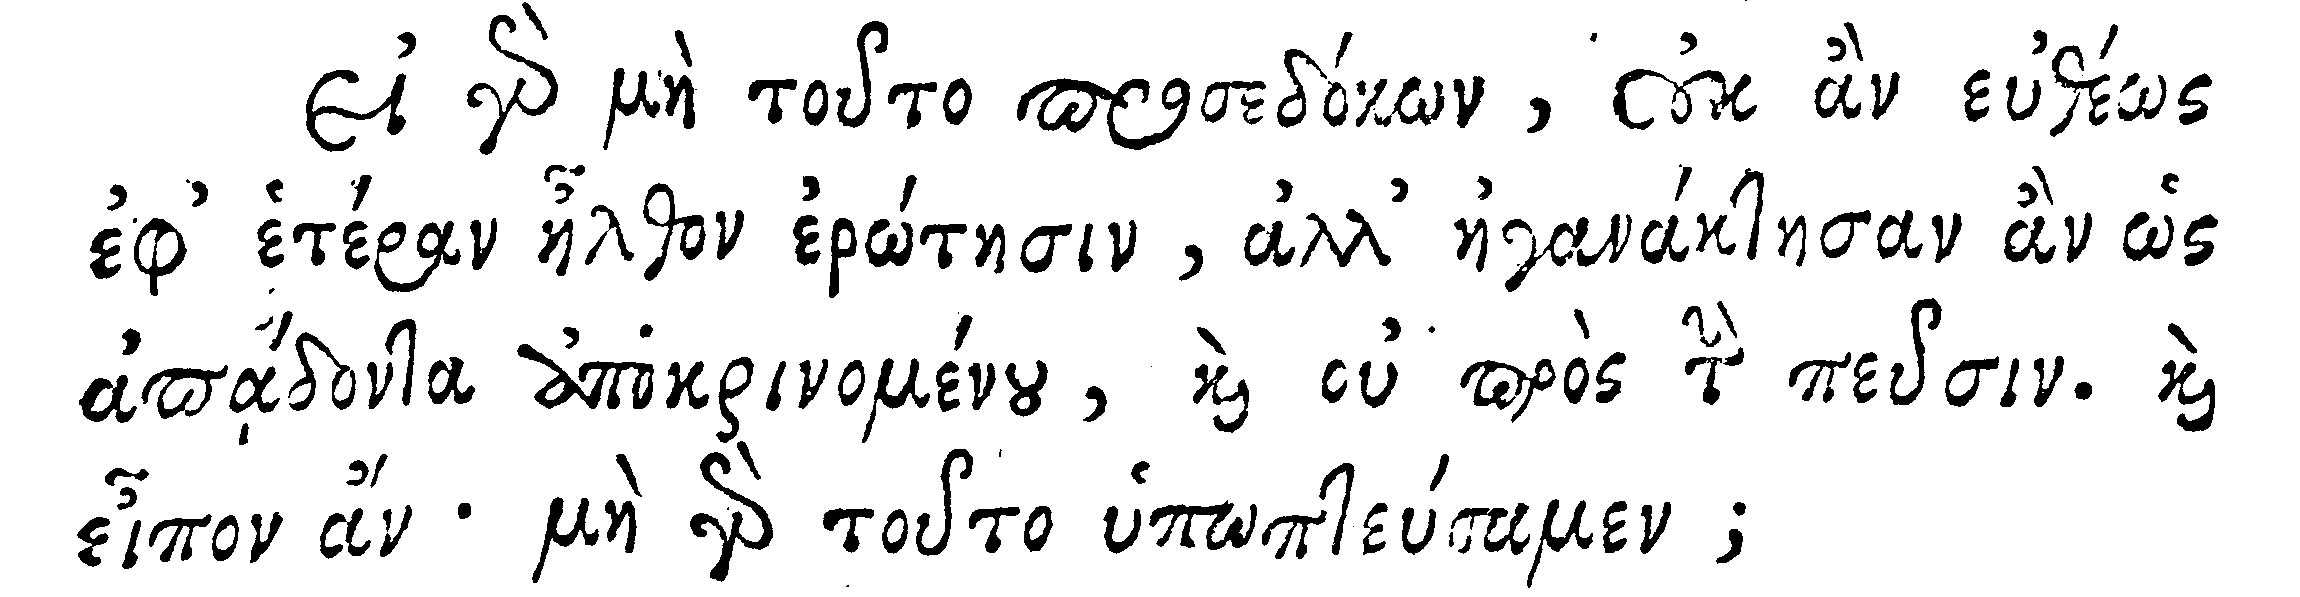 Εἰ γὰρ μὴ τοῦτο προσεδόκων, οὐκ ἂν εὐθέως
ἐφ’ ἑτέραν ἦλθον ἐρώτησιν, ἀλλ’ ἠγανάκτησαν ἂν ὡς
ἀπᾴδοντα ἀποκρινομένου, καὶ οὐ πρὸς τὴν πεῦσιν. καὶ
εἶπον ἄν· μὴ γὰρ τοῦτο ὑπωπτεύσαμεν;